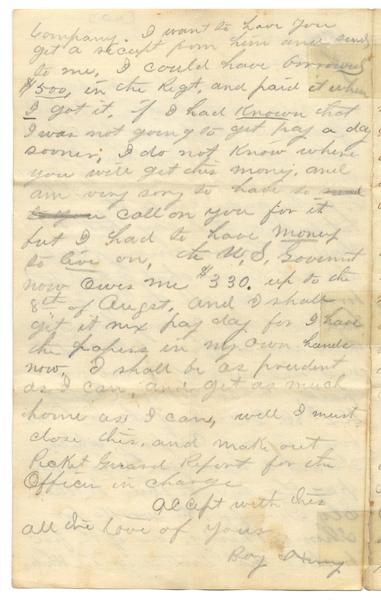 Company. I want to have you
get a receipt from him and send
to me, I could have borrowed
$500, in the Regt, and paid it when
I got it. if I had Known that
I was not going to get pay a day
sooner, I do not Know where
you will get this money, and
am very sorry to have to send
to you call on you for it
but I had to have Money
to live on, the U.S. Govermt
now owes me $330. up to the
8th of Augst, and I shall
get it nex pay day for I have
the papers in my own hands
now, I shall be as prudent
as I can, and get as much
home as I can, well I must
close this, and make out
Picket Guard Report for the
Officer in charge
accept with this
all the Love of yours
Boy Henry